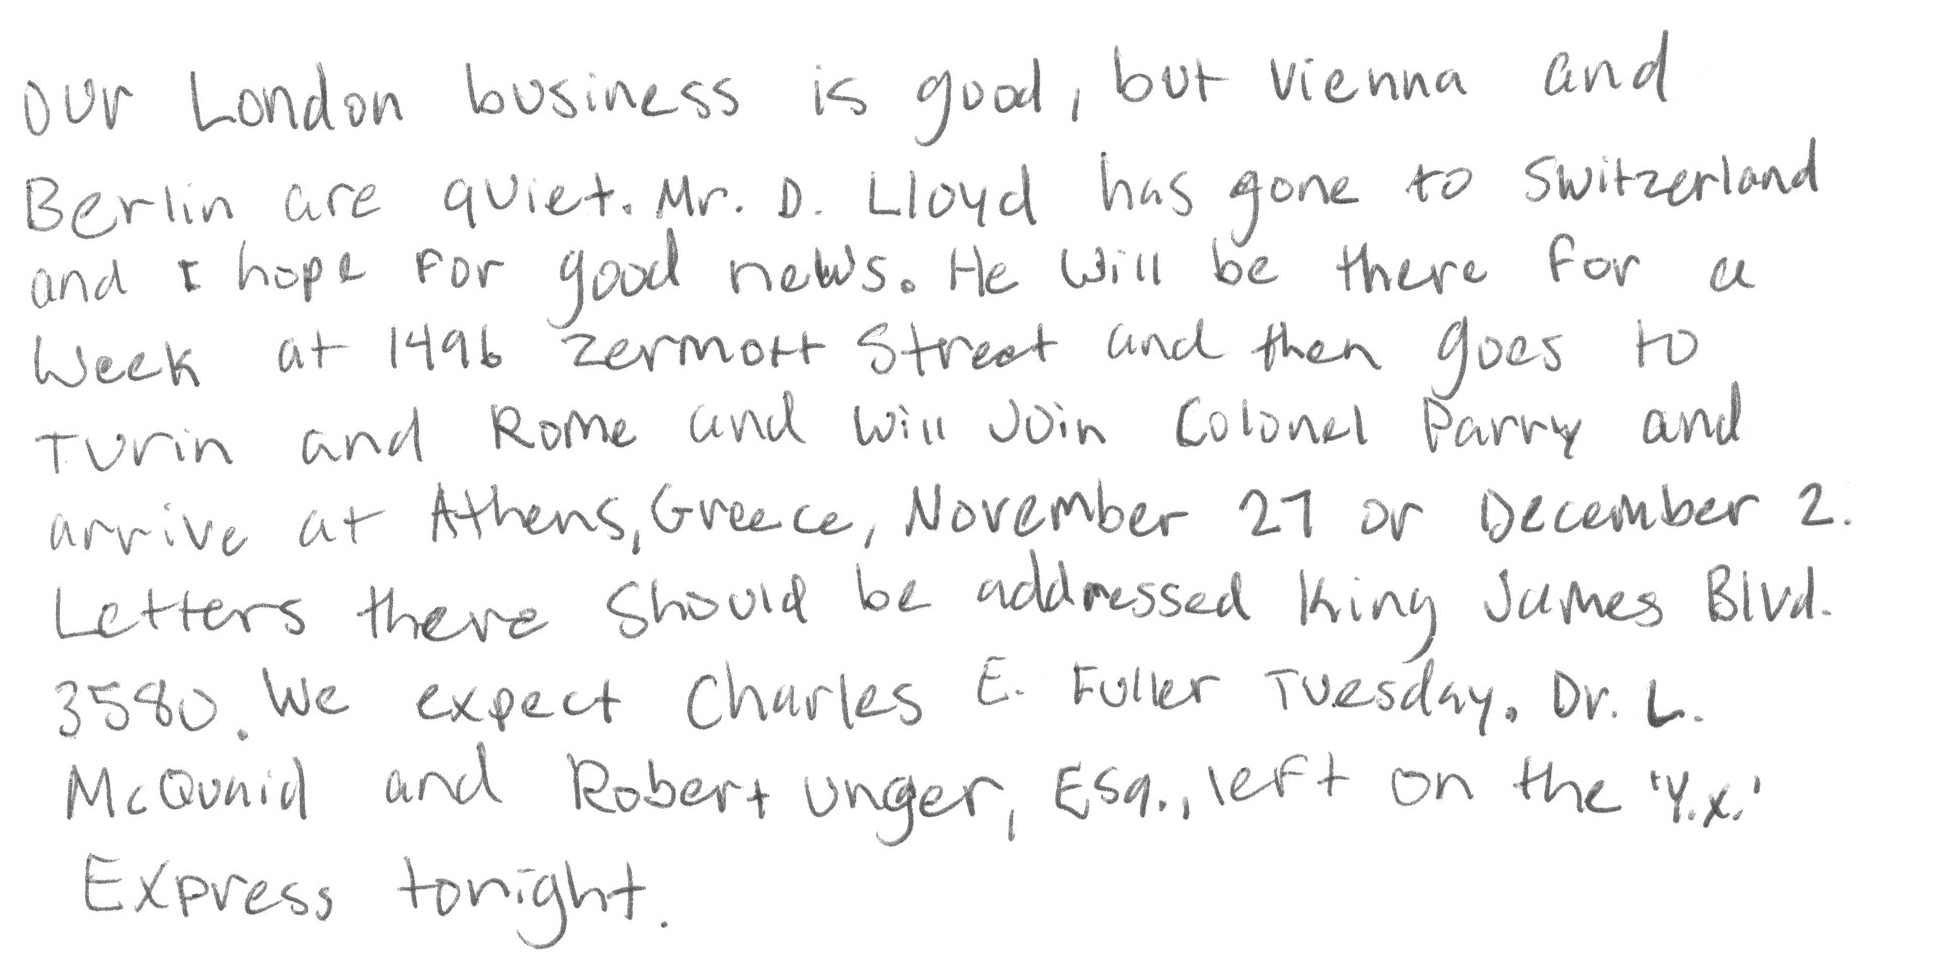 Our London business is good, but Vienna and
Berlin are quiet. Mr. D. Lloyd has gone to Switzerland
and I hope for good news. He will be there for a
week at 1496 Zermott Street and then goes to
Turin and Rome and will join Colonel Parry and
arrive at Athens, Greece, November 27 or December 2.
Letters there should be addressed King James Blvd.
3580. We expect Charles E. Fuller Tuesday. Dr. L.
McQuaid and Robert Unger, Esq., left on the 'Y.X.'
Express tonight.